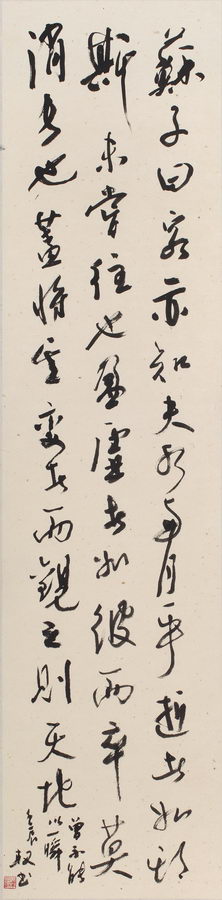 蘇子曰客亦知夫水與月乎逝者如
斯未嘗往也盈虛者如彼而卒莫
消長也蓋將自變者而觀之則天地
曾不能
以一瞬
壬辰
书